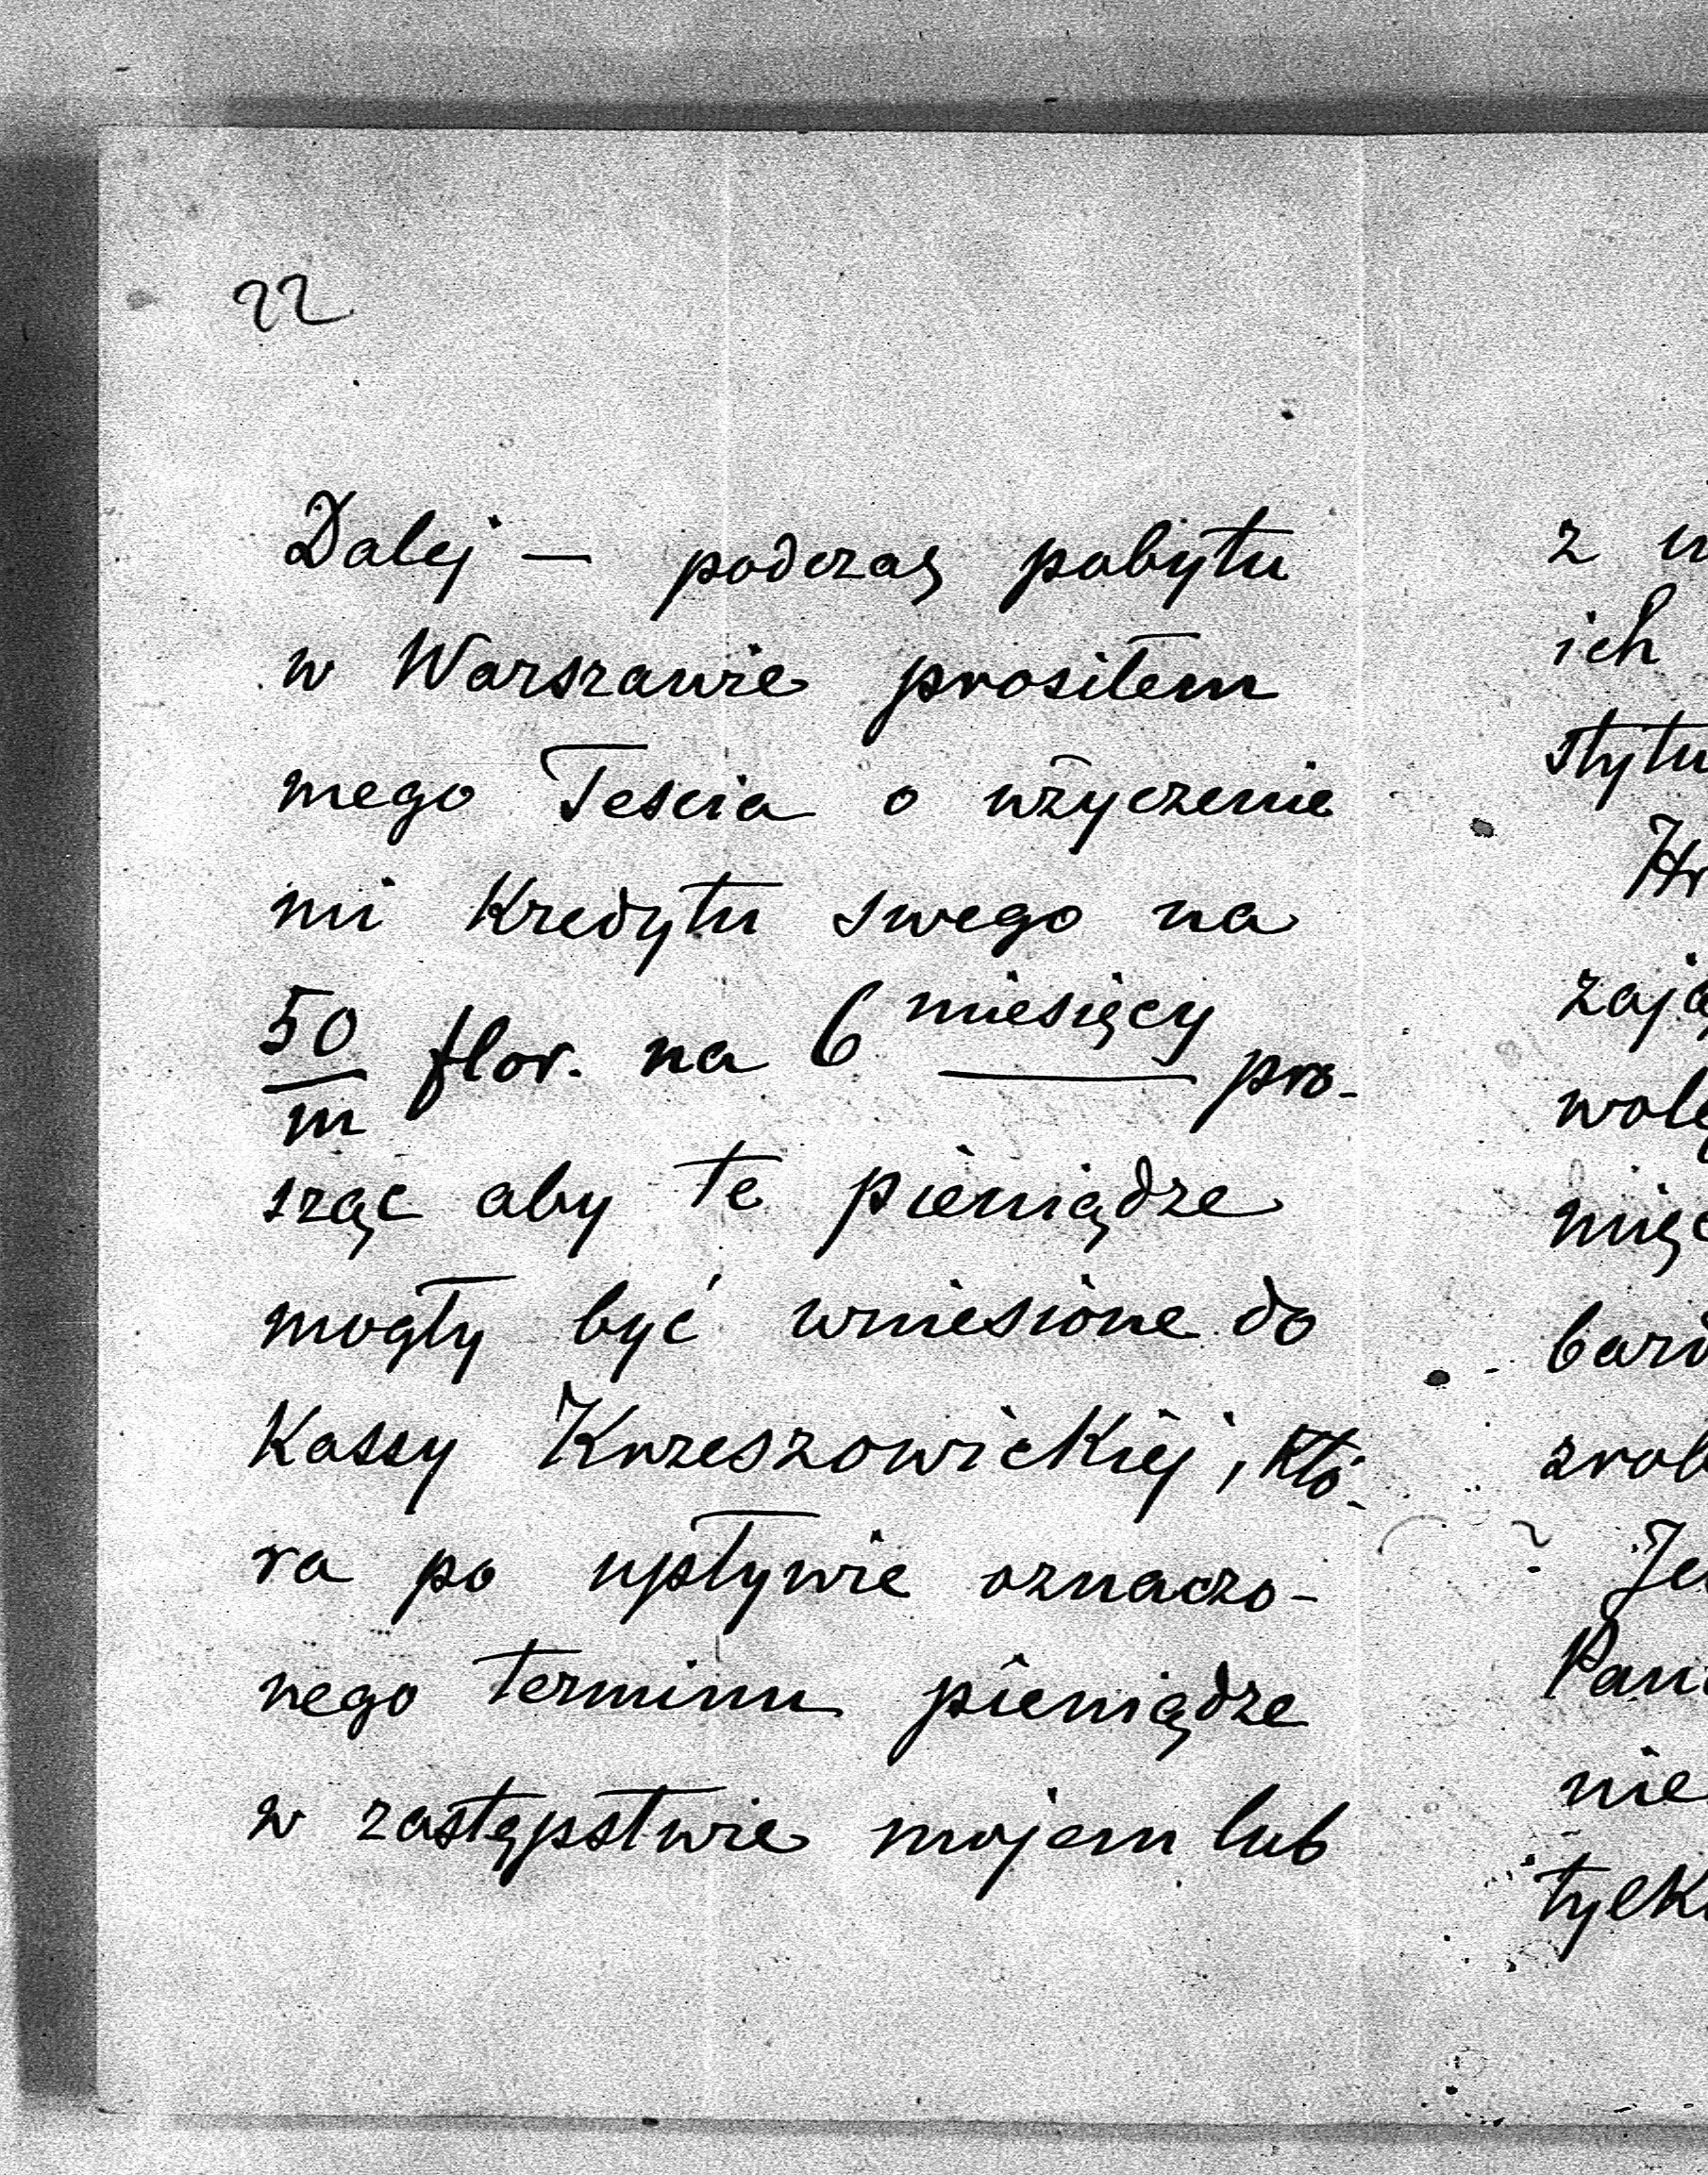 22
Dalej — podczas pobytu
w Warszawie prosiłem
mego Teścia o użyczenie
mi Kredytu swego na
50/m flor. na 6 miesięcy pro-
sząc aby te pieniądze
mogły być wniesione do
Kassy Krzeszowickiej, któ-
ra po upływie oznaczo-
nego terminu pieniądze
w zastępstwie mojem lub
z
ich
stytu
Hr
zają
wole
mięc
bard
zrob
Je
Pani
nie
tylk